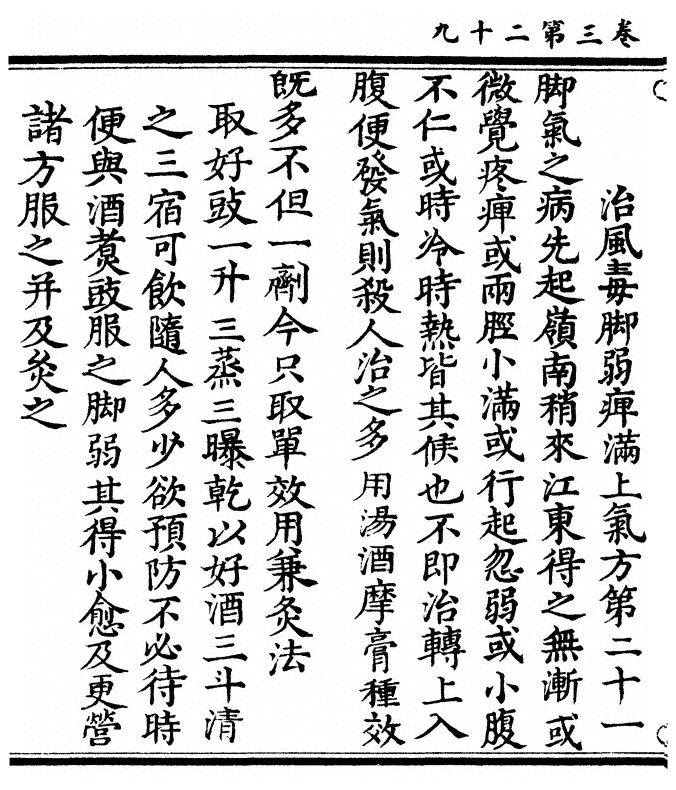 卷三第二十九
治風毒脚弱痺滿上氣方第二十一
脚氣之病先起嶺南稍來江東得之無漸或
微覺疼痺或兩脛小滿或行起忽弱或小腹
不仁或時冷時熱皆其候也不即治轉上入
腹便發氣則殺人治之多用湯酒摩膏種效
既多不但一劑今只取單效用兼灸法
取好豉一升三蒸三曝乾以好酒三斗清
之三宿可飲隨人多少欲預防不必待時
便與酒煑豉服之脚弱其得小愈及更營
諸方服之并及灸之